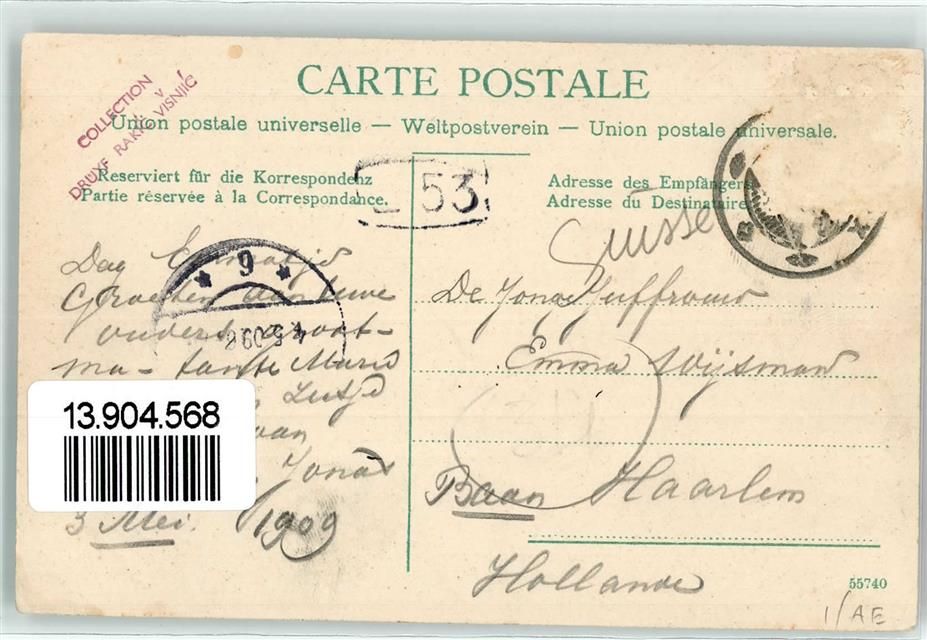 CARTE POSTALE
COLLECTION
DRUXF RAKIC V VISNJIC
Union postale universelle — Weltpostverein — Union postale universale.
Reserviert für die Korrespondenz
Partie réservée à la Correspondance.
53
Adresse des Empfängers
Adresse du Destinataire
Suisse
9
4.5.09
Dag
Groeten aan uwe
ouders groot-
ma - tante Marie
Jonas
3 Mei. 1909
De Jonge Juffrouw
Emma Wijsman
Baan Haarlem
Hollande
55740
1/AE
13.904.568